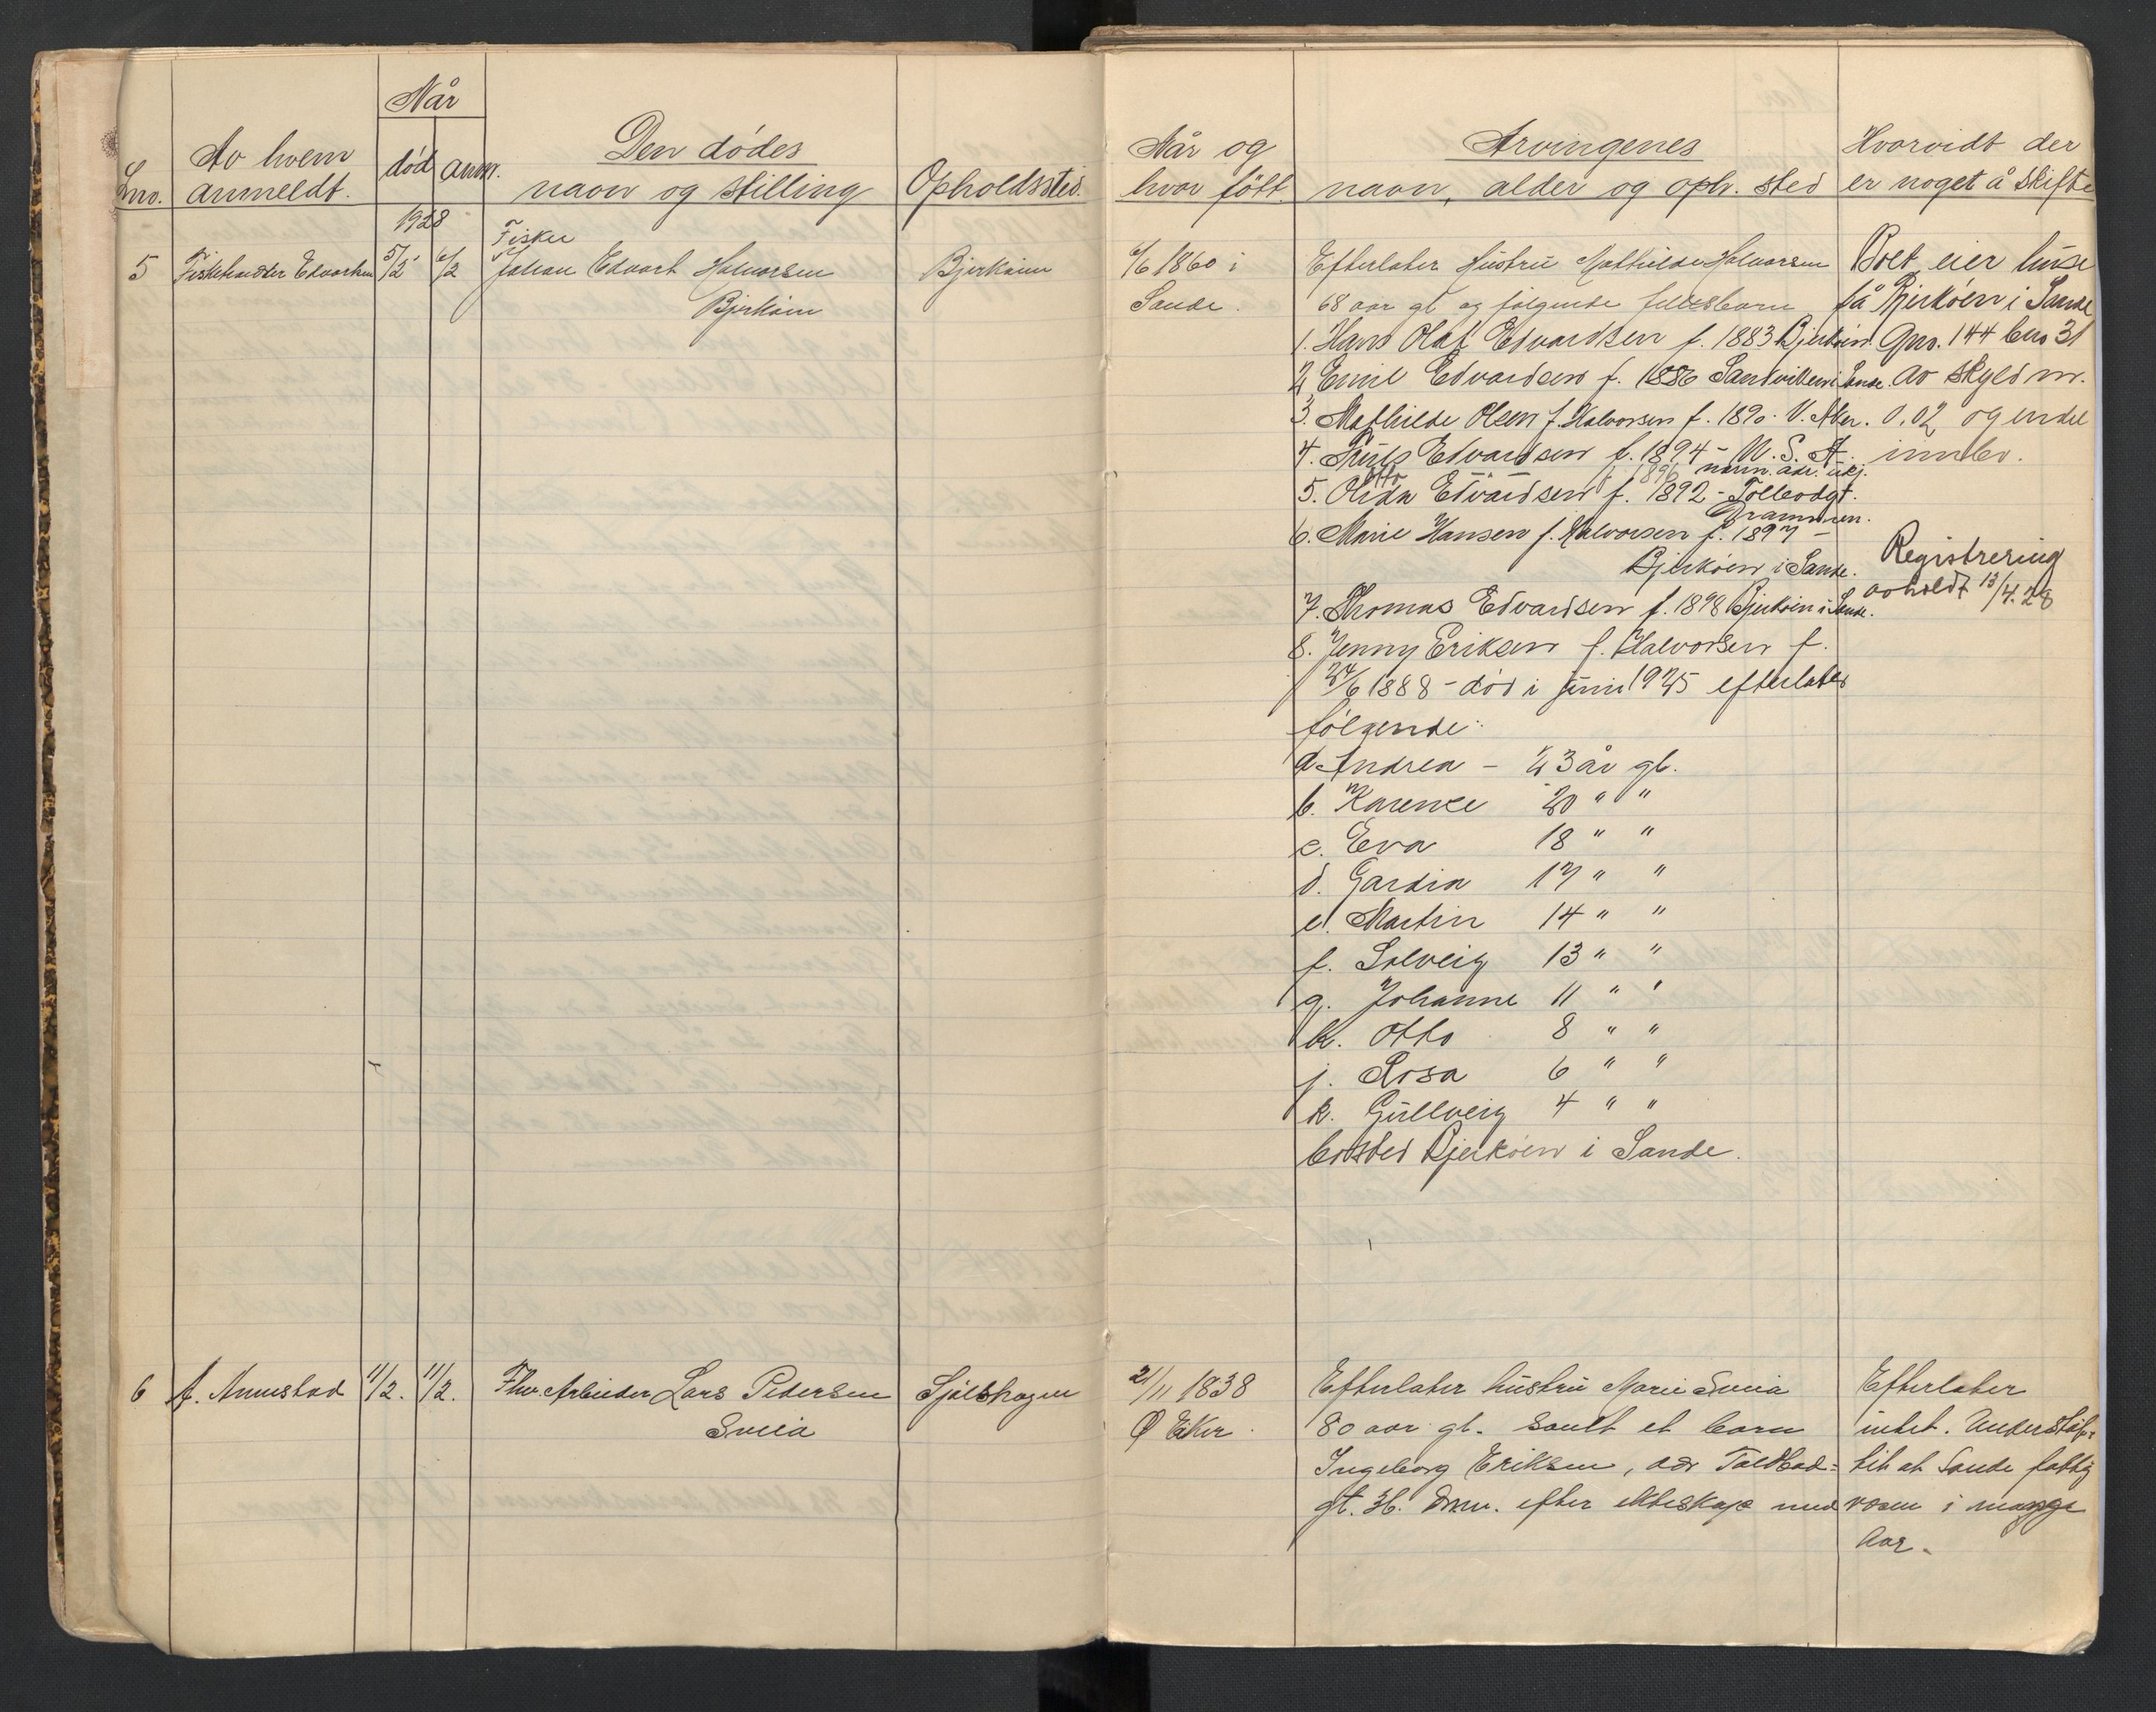 Når
Lnr. Av hvem anmeldt. død anm. Den dødes navn og stilling Opholdssted. Når og hvor født. Arvingenes navn, alder og oph. sted Hvorvidt der er noget å skifte
1928
5 Fiskehandler Edvardsen 5/2 6/2 Fisker Johan Edvart Halvorsen Bjerkøen Bjerkøen
6/6 1860 i Sande.
Efterlater Hustru Mathilde Halvorsen
68 aar gl og følgende fellesbarn
1. Hans Olaf Edvardsen f. 1883 Bjerkøen.
2. Emil Edvardsen f. 1886 Sandviken i Sande.
3. Mathilde Olsen f. Halvorsen f. 1890. V. Aker.
4. Trüls Edvardsen f. 1894 - U. S. A.
nærm. adr. ukj.
Otto 1896
5. Olida Edvardsen f. 1892 - Tollbodgt.
Drammen.
6. Marie Hansen f. Halvorsen f. 1897 -
Bjerkøen i Sande.
7. Thomas Edvardsen f. 1898 Bjerkøen i Sande.
8. Jenny Eriksen f. Halvorsen f.
24/6 1888 - død i juni 1925 efterlater
følgende:
a. Andrea - 23 år gl.
b. Karense 20 " "
c. Eva 18 " "
d. Gardia 17 " "
e. Martin 14 " "
f. Solveig 13 " "
g. Johanne 11 " "
h. Otto 8 " "
j. Rosa 6 " "
k. Gullveig 4 " "
bosted Bjerkøen i Sande.
Boet eier huse
på Bjerkøen i Sande
Gnr. 144 bno 31
av skyld m.
0,02 og endel
innbo.
Registrering
avholdt 13/4.28
6 A. Annestad 11/2. 11/2. Fhv. Arbeider Lars Pedersen Sveia Sjølshagen
21/11 1838
Ø Eker.
Efterlater hustru Marie Sveia
80 aar gl. samt et barn
Ingeborg Eriksen, adr Toldbod=
gt. 36. Drm. efter ekteskap med
Efterlater
intet. Understøt=
tet at Sande fattig
væsen i mange
Aar.